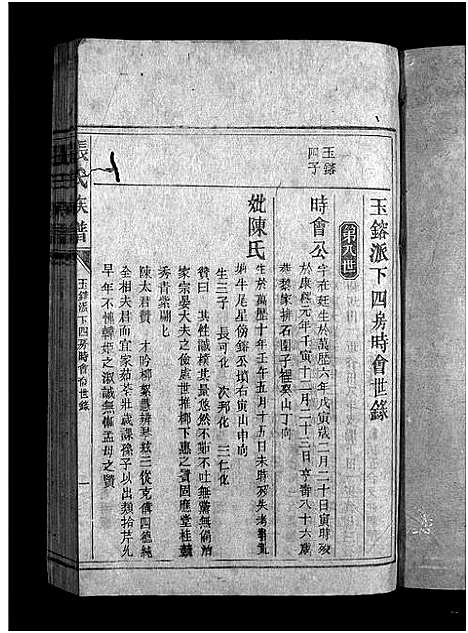 玉鎔派下四房時會世錄
第八世
玉鎔
四子
時會公
字在廷生於萬歷六年戊寅歲二月二十日寅時歿
於康熙元年壬寅十二月二十三日亨壽八十六歲
葬黎家排石圍子裡癸山丁向
妣陳氏
生於萬歷十年壬午五月十五日未時歿失考葬
牛尾星份鎔公墳右寅山申向
生三子 長可化 次邦化 三仁化
贊曰 其性誠樸其量悠然不吐無驕無侮治
家宗晏大夫之儉處世推柳下惠之賢固應堂桂
秀青紫關上
陳太君贊 才吟柳絮慧辨琴絃三從克備四德純
全相夫君而宜家茹荼莊歲課孫子以出類拾芹
早年不愧韓姞之淑誠無慚孟母之賢
張氏族譜
玉鎔派下四房時會公世錄
一